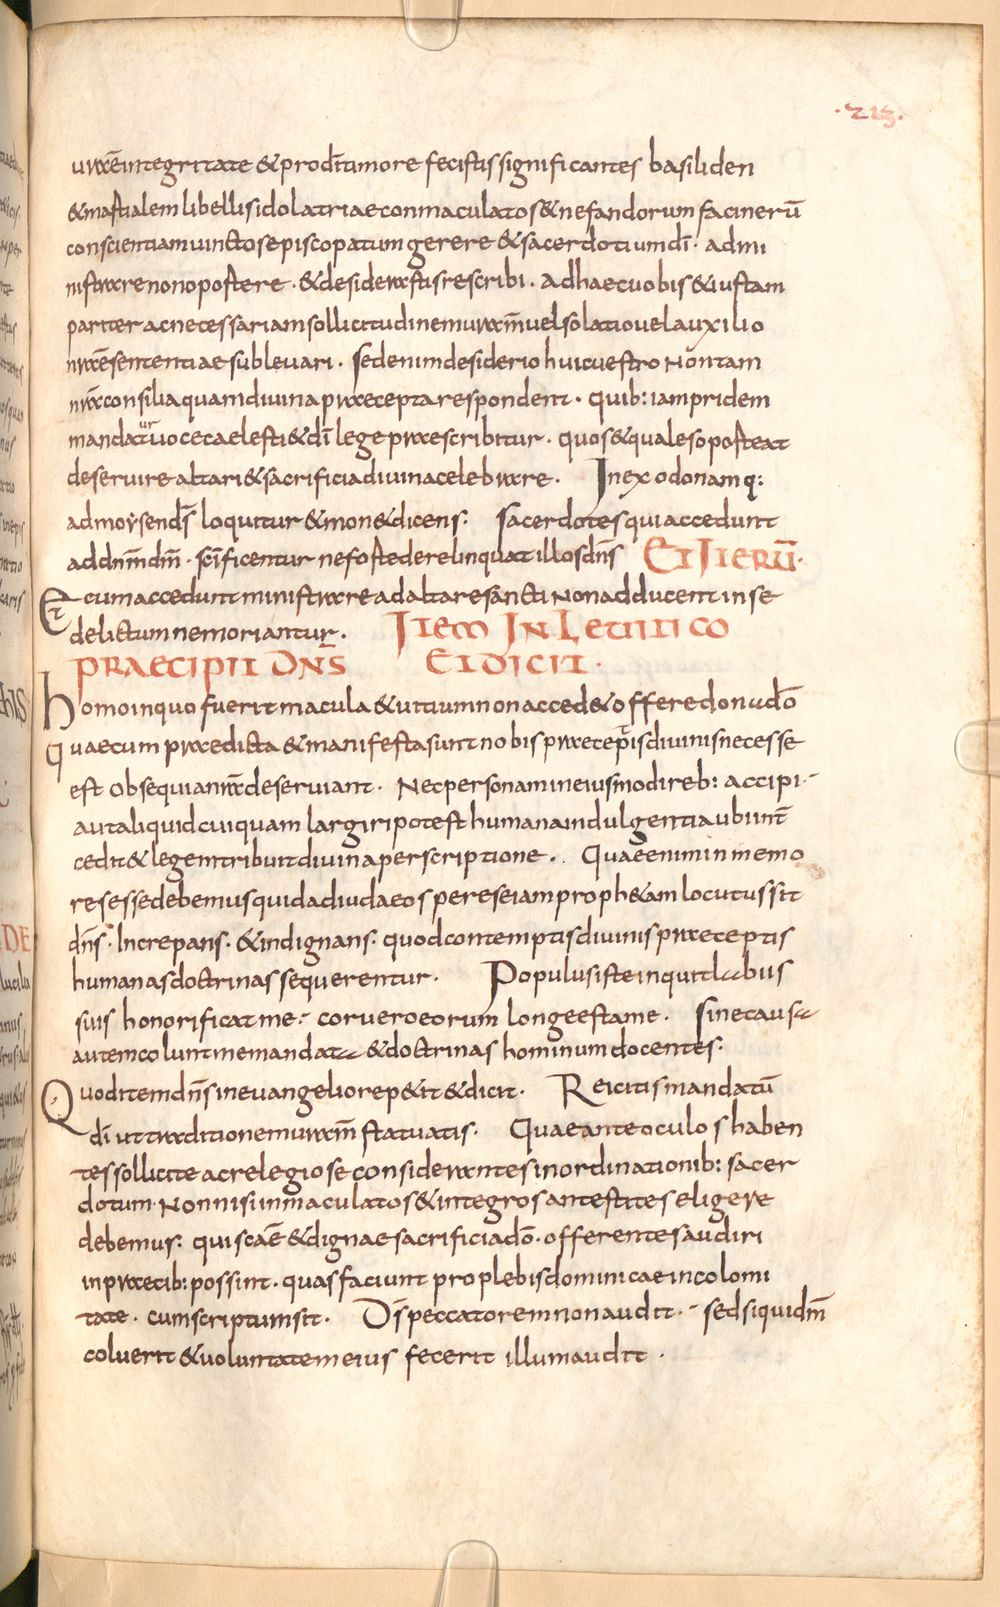 ·213·
urae̅ integritate & pro di̅ timore fecistis significantes basiliden
& mastialem libellis idolatriae conmaculatos & nefandorum facineru̅
conscientiam uinctos episcopatum gerere & sacerdotium di̅· admi
nistrare non oportere · & desiderastis rescribi · ad haec uobis & iustam
pariter ac necessariam sollicitudinem uram̅ uel solatio uel auxilio
nrae̅ sententiae subleuari · sed enim desiderio huic uestro non tam
nra̅ consilia quam diuina praecepta respondent · quib: iam pridem
mandatur uoce caelesti & di̅ lege praescribitur · quos & quales oporteat
deseruire altari & sacrificia diuina celebrare · In exodo namq:
ad moysen ds̅ loquitur & mon& dicens · sacerdotes qui accedunt
ad dnm̅ dm̅ · sci̅ficentur ne forte derelinquat illos dns̅ ET ITERU̅·
Et cum accedunt ministrare ad altare sancti non adducent in se
delictum ne moriantur · ITEM IN LEUITICO
PRAECIPIT DNS̅ ET DICIT ·
homo in quo fuerit macula & uitium non acced& offere dona do̅
quae cum praedicta & manifesta sunt nobis praeceptis diuinis necesse
est obsequia nra̅ deseruiant · Nec personam in eiusmodi reb: accipi ·
aut aliquid cuiquam largiri potest humana indulgentia ubi int̅
cedit & legem tribuit diuina perscriptione · Quae enim inmemo
res esse debemus quid ad iudaeos per eseiam proph&am locutus sit
dns̅ · Increpans · & indignans · quod contemptis diuinis praeceptis
humanas doctrinas sequerentur · Populus iste inquit labiis
suis honorificat me · cor uero eorum longe est a me · sine causa
autem colunt me mandata & doctrinas hominum docentes ·
Quod item dns̅ in euangelio rep&it & dicit · Reicitis mandatu̅
di̅ ut traditionem uram̅ statuatis · Quae ante oculos haben
tes sollicite ac relegiose considerantes in ordinationib: sacer
dotum · Non nisi inmaculatos & integros antestites eligere
debemus: qui scae̅ & digne sacrificia do̅ · offerentes audiri
in praecib: possint · quas faciunt pro plebis dominicae incolomi
tate · cum scriptum sit · Ds̅ peccatorem non audit · sed si qui dm̅
coluerit & uoluntatem eius fecerit illum audit ·